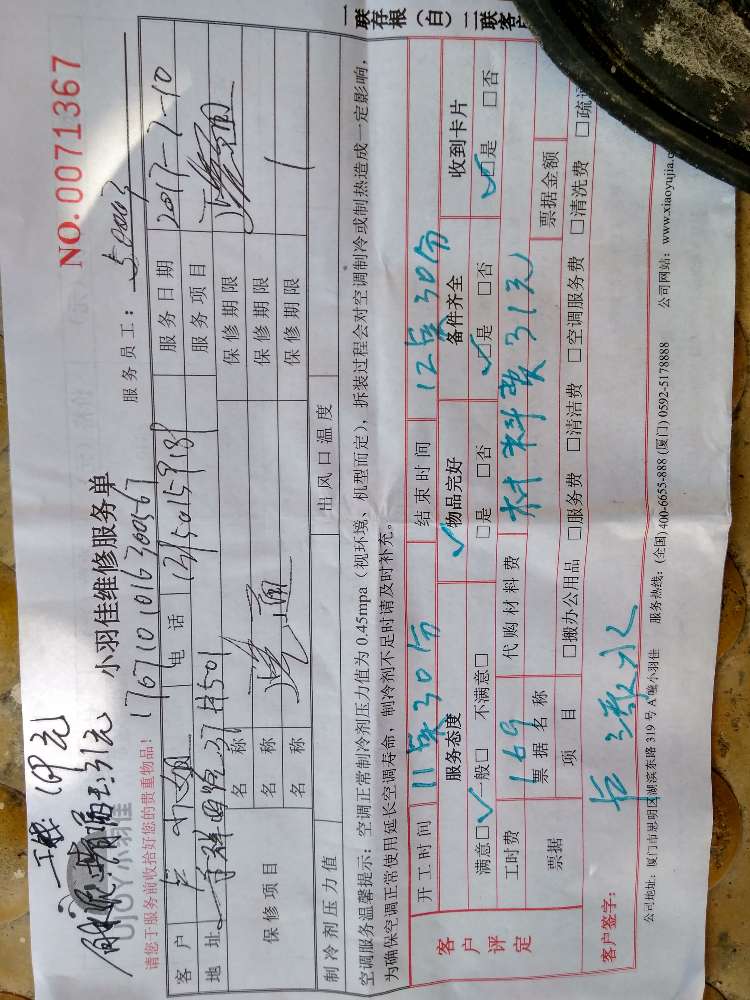 NO.0071367
小羽佳维修服务单
请您于服务前收拾好您的贵重物品!
服务员工:
客户 电话 服务日期 2017-7-10
地址 服务项目
保修项目 名称 保修期限
名称 保修期限
名称 保修期限
制冷剂压力值 出风口温度
空调服务温馨提示:空调正常制冷剂压力值为0.45mpa(视环境、机型而定),拆装过程会对空调制冷或制热造成一定影响,
为确保空调正常使用延长空调寿命,制冷剂不足时请及时补充。
客户评定
开工时间 11点30分 结束时间 12点30分
服务态度 物品完好 备件齐全 收到卡片
满意□ 一般□ 不满意□ □是 □否 □是 □否 □是 □否
工时费 169 代购材料费 材料费31元
票据 票据名称 票据金额
项目 □搬办公用品 □服务费 □清洁费 □空调服务费 □清洗费 □疏
客户签字:
公司地址:厦门市思明区湖滨东路319号A幢小羽佳 服务热线:(全国)400-6655-888 (厦门)0592-5178888 公司网站:www.xiaoyujia.c
一联存根(白)二联客